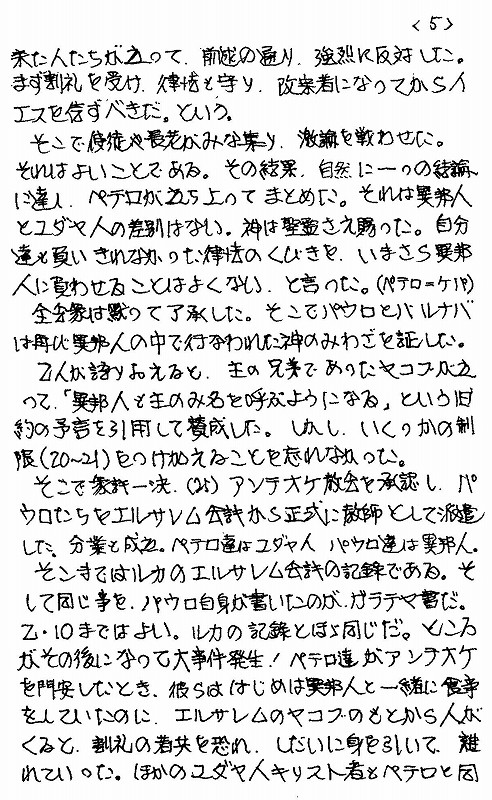 <5>
来た人たちが立って、前述の通り、強烈に反対した。
まず割礼を受け、律法を守り、改宗者になってからイ
エスを信ずべきだ。という。
そこで使徒や長老がみな集り、激論を戦わせた。
それはよいことである。その結果、自然に一つの結論
に達し、ペテロが立ち上ってまとめた。それは異邦人
とユダヤ人の差別はない。神は聖霊さえ賜った。自分
達も負いきれなかった律法のくびきを、いまさら異邦
人に負わせることはよくない、と言った。(ペテロ=ケパ)
全会衆は黙って了承した。そこでパウロとバルナバ
は再び異邦人の中で行なわれた神のみわざを証した。
2人が語りおえると、主の兄弟であったヤコブが立
って、「異邦人も主のみ名を呼ぶようになる」という旧
約の予言を引用して賛成した。しかし、いくつかの制
限(20~21)をつけ加えることを忘れなかった。
そこで衆計一決、(25)アンテオケ教会を承認し、パ
ウロたちをエルサレム会計から正式に教師として派遣
した。分業も成立。ペテロ達はユダヤ人 パウロ達は異邦人。
そこまではルカのエルサレム会計の記録である。そ
して同じ事を、パウロ自身が書いたのが、ガラテヤ書だ。
2・10まではよい。ルカの記録とほぼ同じだ。ところ
がその後になって大事件発生!ペテロ達がアンテオケ
を問安したとき、彼らははじめは異邦人と一緒に食事
をしていたのに、エルサレムのヤコブのもとから人が
くると、割礼の者共を恐れ、しだいに身を引いて、離
れていった。ほかのユダヤ人キリスト者もペテロと同